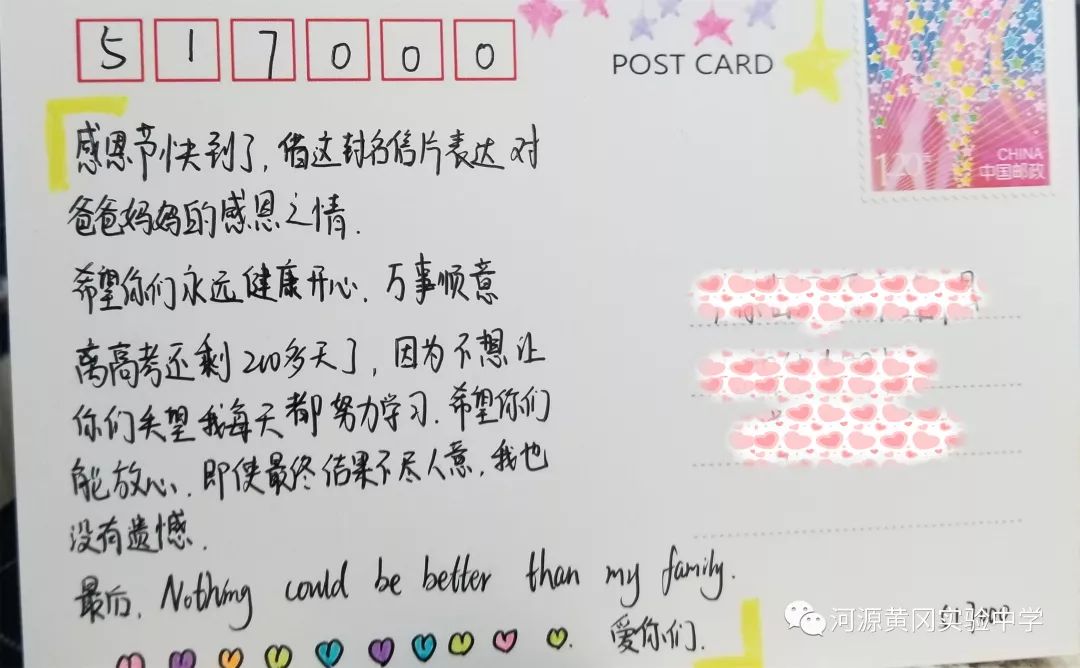 517000
POST CARD
1.20元
CHINA
中国邮政
感恩节快到了,借这封名信片表达对
爸爸妈妈的感恩之情.
希望你们永远健康开心.万事顺意
离高考还剩200多天了,因为不想让
你们失望我每天都努力学习.希望你们
能放心.即使最终结果不尽人意.我也
没有遗憾.
最后.Nothing could be better than my family.
爱你们.
517000
河源黄冈实验中学